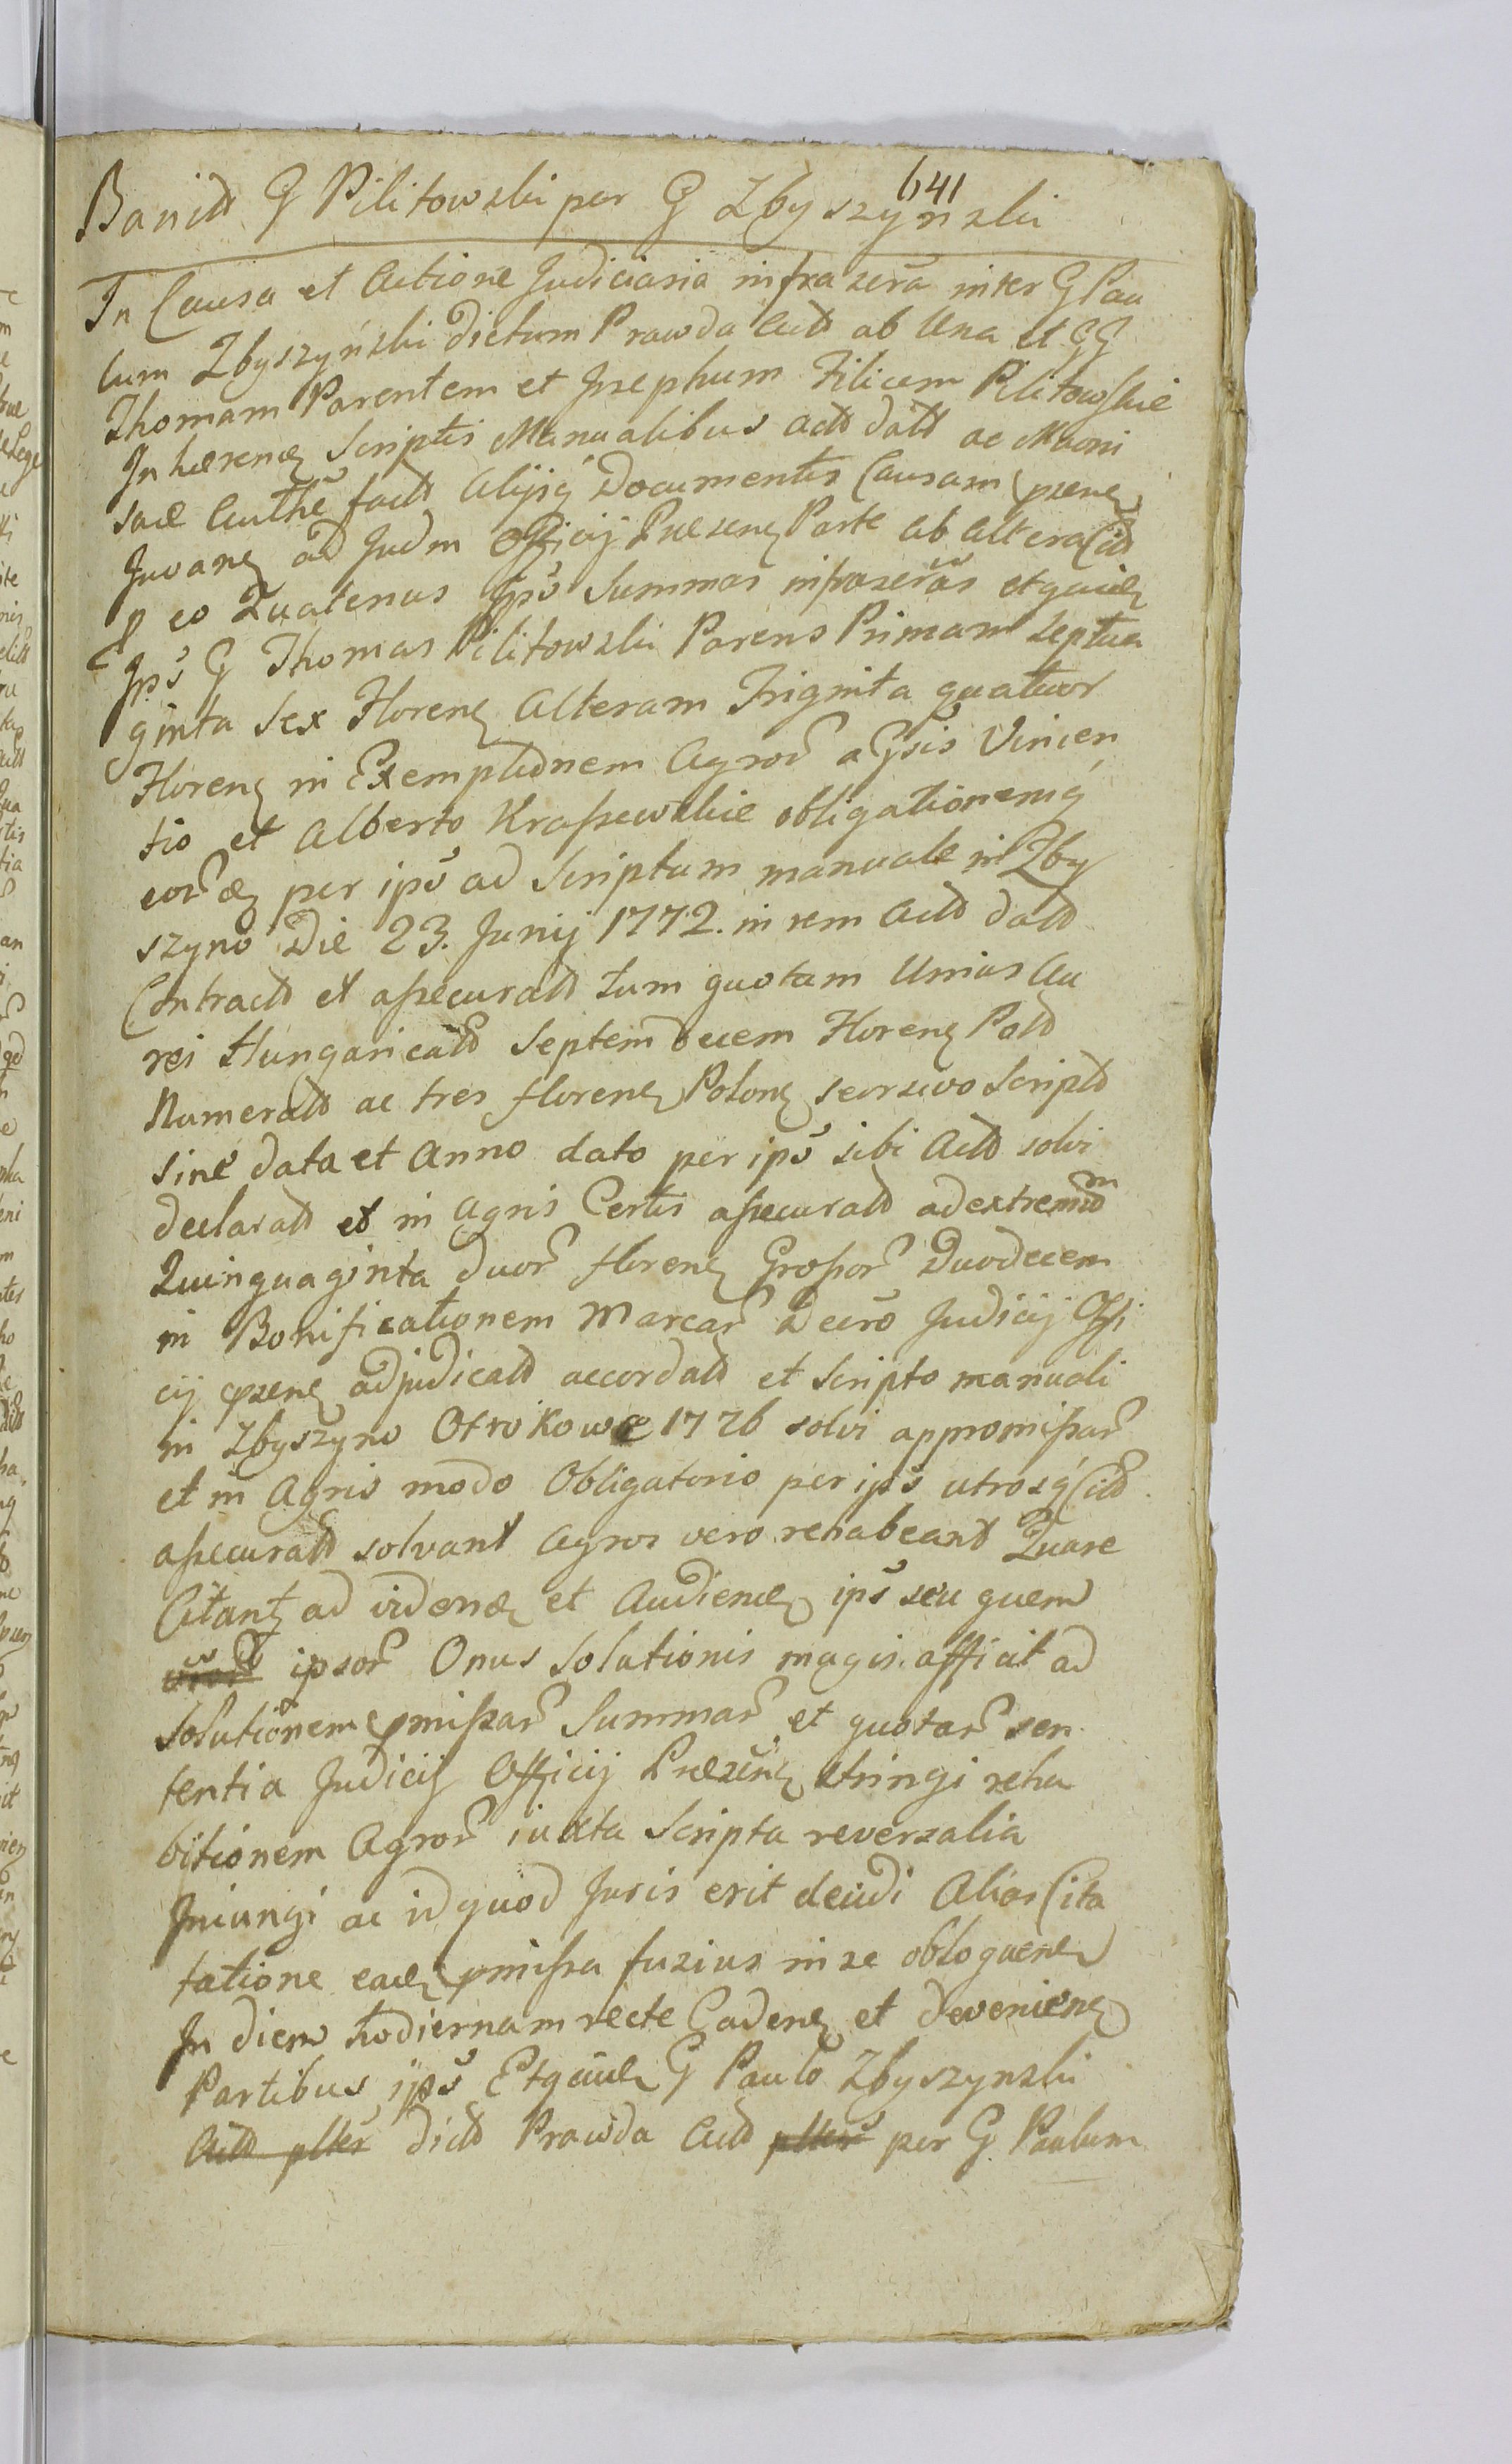 641
Banitt G Pilitowski per G Zbyszynski
In Causa et Actione Judiciaria infrascra inter G Pau
lum Zbyszynski dictum Prawda Actt ab Una et GG
Thomam Parentem et Josephum Filium Pilitowskie
Inhærenz Scriptis Manualibus actt datt ac Muni
Authe factt Alijsq Documentis Causam psenz
Juvanz ad Judm Officij Præsenz Parte ab altera Citt
p eo Quatenus ips Summas infrascras etquidz
Ips G Thomas Pilitowski Parens Primam Septua
ginta Sex Florenz Alteram Triginta quatuor
Florenz in Exemptionem Agror a Gsis Vincen
tio et Alberto Krassewskie obligationemq
eor per ips ad Scriptum manuale in Zby
szyno Die 23. Junij 1772. in rem Actt datt
Contractt et assecuratt tum quotam Unius Au
rei Hungaricatt Septemdecem Florenz Poltt
Numeratt ac tres florenz Polonz seorsivo Scriptt
sine data et Anno dato per ips sibi Actt solvi
declaratt et in Agris Certis assecuratt ad extremum
Quinquaginta duor florenz Grossor Duodecem
in Bonificationem Marcar decro Judicij Offi
cij psenz adjudicatt accordatt et Scripto manuali
in Zbyszyno Otrokowæ 1776 solvi appromissar
et in Agris modo Obligatorio per ips utrosq Citt
assecuratt solvant Agros vero rehabeant Quare
Citant ad videndz et Audienz ips seu quem
ipsor Onus Solutionis magis afficit ad
Solutionem pmissar Summar et quotar sen
tentia Judicij Officij Præsenz stringi reha
bitionem Agror iuxta Scripta reversalia
Iniungi ac id quod Juris erit decidi Alias Cita
tatione eadz pmissa fusius in se obloquenz
In diem hodiernam recte Cadenz et devenienz
Partibus ips Etquidz G Paulo Zbyszynski
Actt plter dictt Prawda Actt plter per G. Paulum